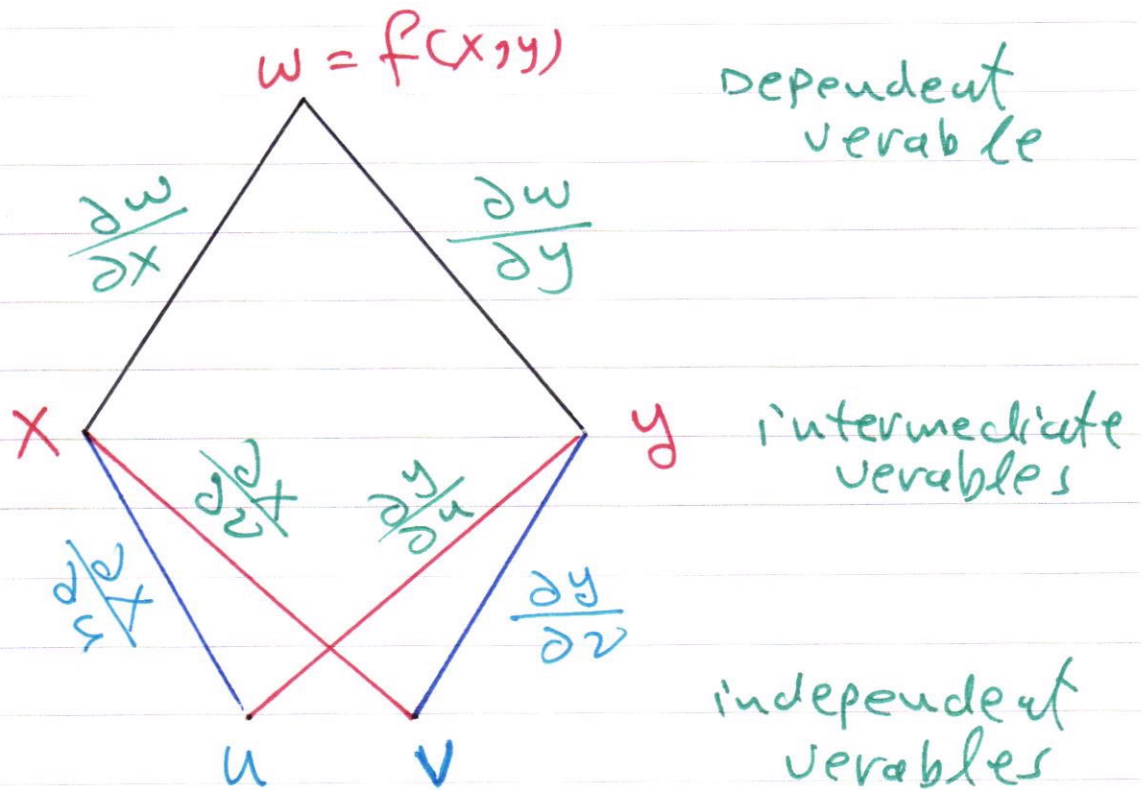 w = f(x,y)
Dependent
verable
∂w/∂x
∂w/∂y
x
y
intermediate
verables
∂x/∂v
∂y/∂u
∂x/∂u
∂y/∂v
independent
verables
u
v